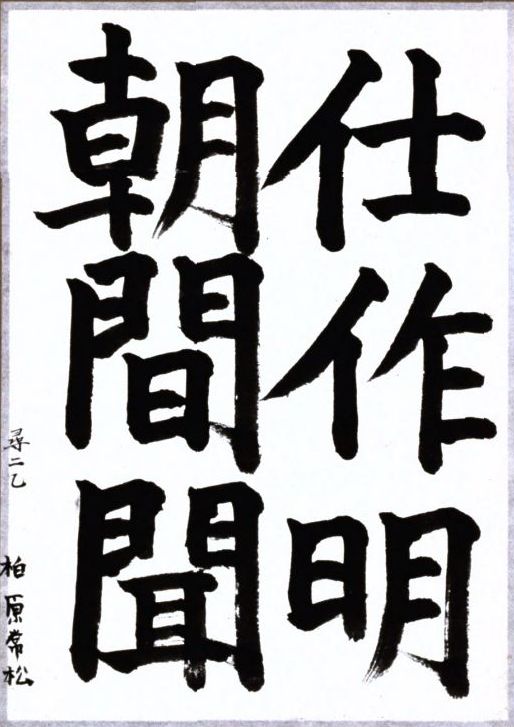 仕作明
朝間聞
尋二乙 柏原常松